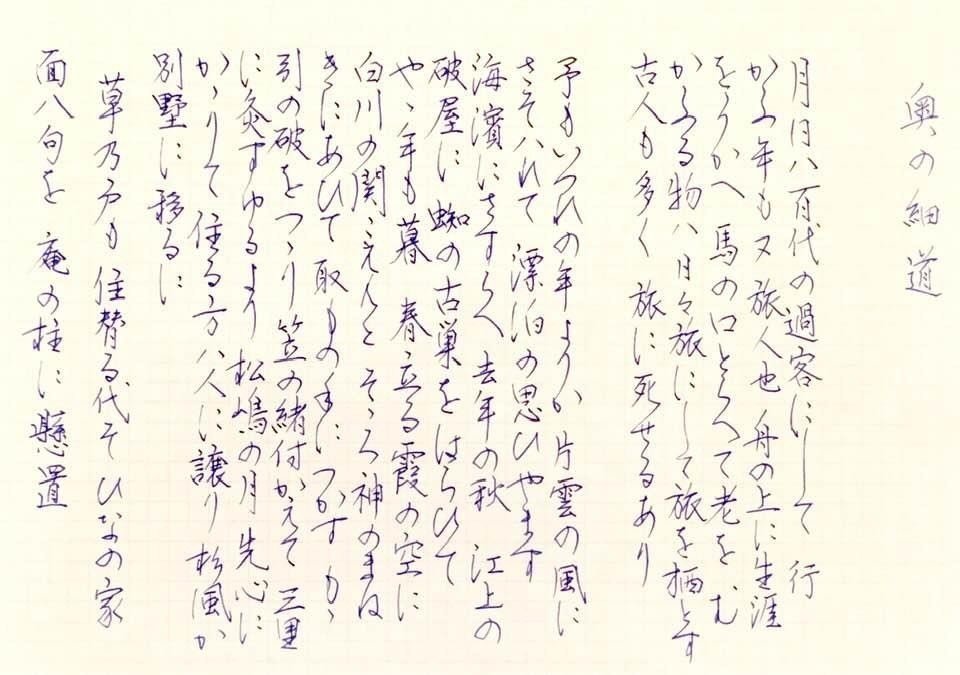 奥の細道
月日ハ百代の過客にして 行
かふ年も又 旅人也 舟の上に生涯
をうかへ 馬の口とらへて老をむ
かふる物ハ 日々旅にして 旅を栖とす
古人も多く 旅に死せるあり
予もいつれの年よりか 片雲の風に
さそハれて 漂泊の思ひやます
海濱にさすらへ 去年の秋 江上の
破屋に 蜘の古巣をはらひて
やゝ年も暮 春立る霞の空に
白川の関こえんと そゝろ神のまね
きにあひて 取もの手につかす もゝ
引の破をつゝり 笠の緒付かえて 三里
に灸すゆるより 松嶋の月 先心に
かゝりて 住る方ハ人に譲り 杉風か
別墅に移るに
草乃戸も 住替る代そ ひなの家
面八句を 庵の柱に懸置